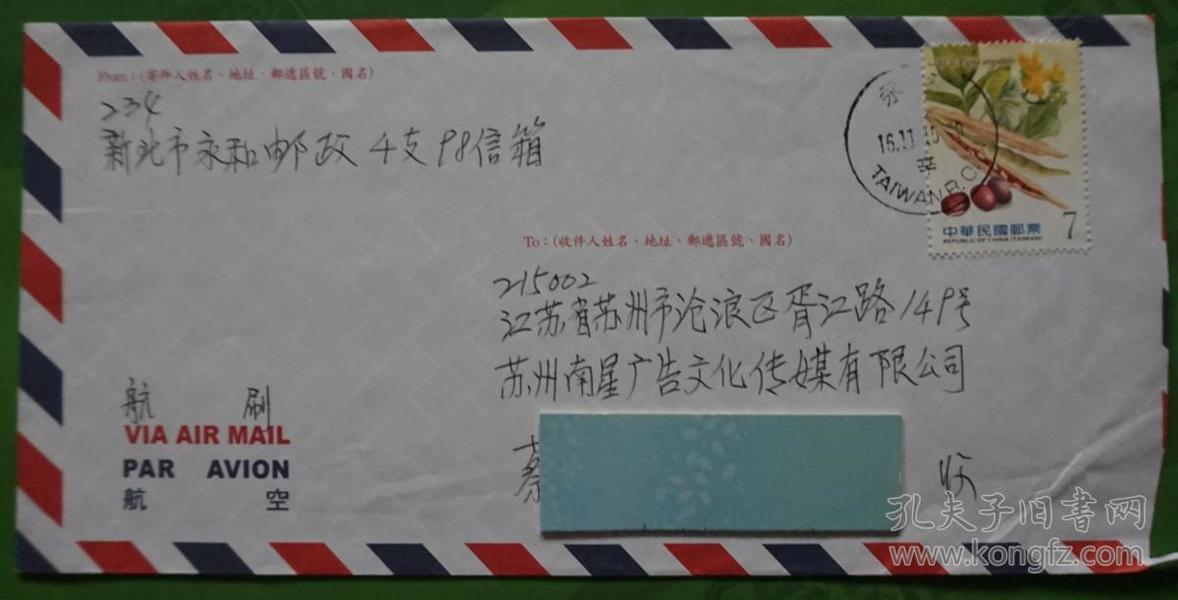 From：(寄件人姓名、地址、郵遞區號、國名)
234
新北市永和邮政4支98信箱
16.11
TAIWAN R.O.C
Vigna angularis
7
中華民國郵票
REPUBLIC OF CHINA (TAIWAN)
To：(收件人姓名、地址、郵遞區號、國名)
215002
江苏省苏州市沧浪区胥江路149号
苏州南星广告文化传媒有限公司
蔡
收
航 刷
VIA AIR MAIL
PAR AVION
航 空
孔夫子旧书网
www.kongfz.com